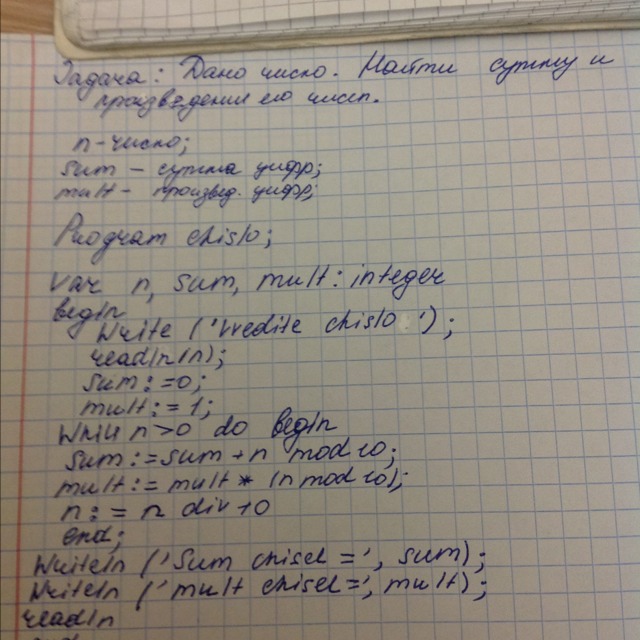 Задача: Дано число. Найти сумму и
произведения его чисел.
n - число;
sum - сумма цифр;
mult - произвед. цифр;
Program chislo;
var n, sum, mult: integer
begin
Write ('Vvedite chislo');
readln(n);
sum:=0;
mult:=1;
While n>0 do begin
sum:=sum+n mod 10;
mult:=mult*(n mod 10);
n:=n div 10
end;
Writeln ('Sum chisel=', sum);
Writeln ('mult chisel=', mult);
readln